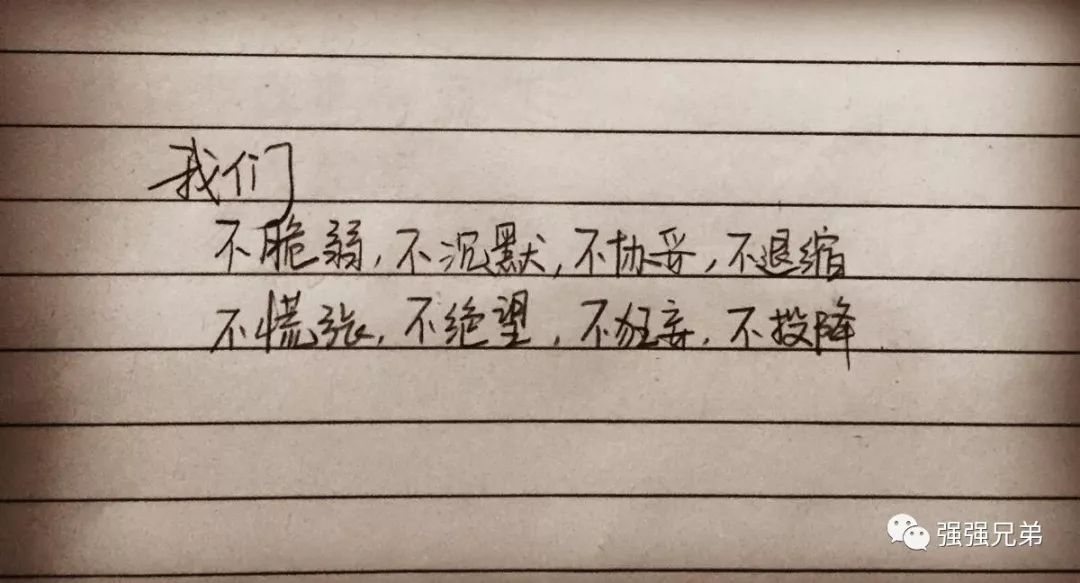 我们
不脆弱,不沉默,不协妥,不退缩
不慌张,不绝望,不狂妄,不投降
强强兄弟